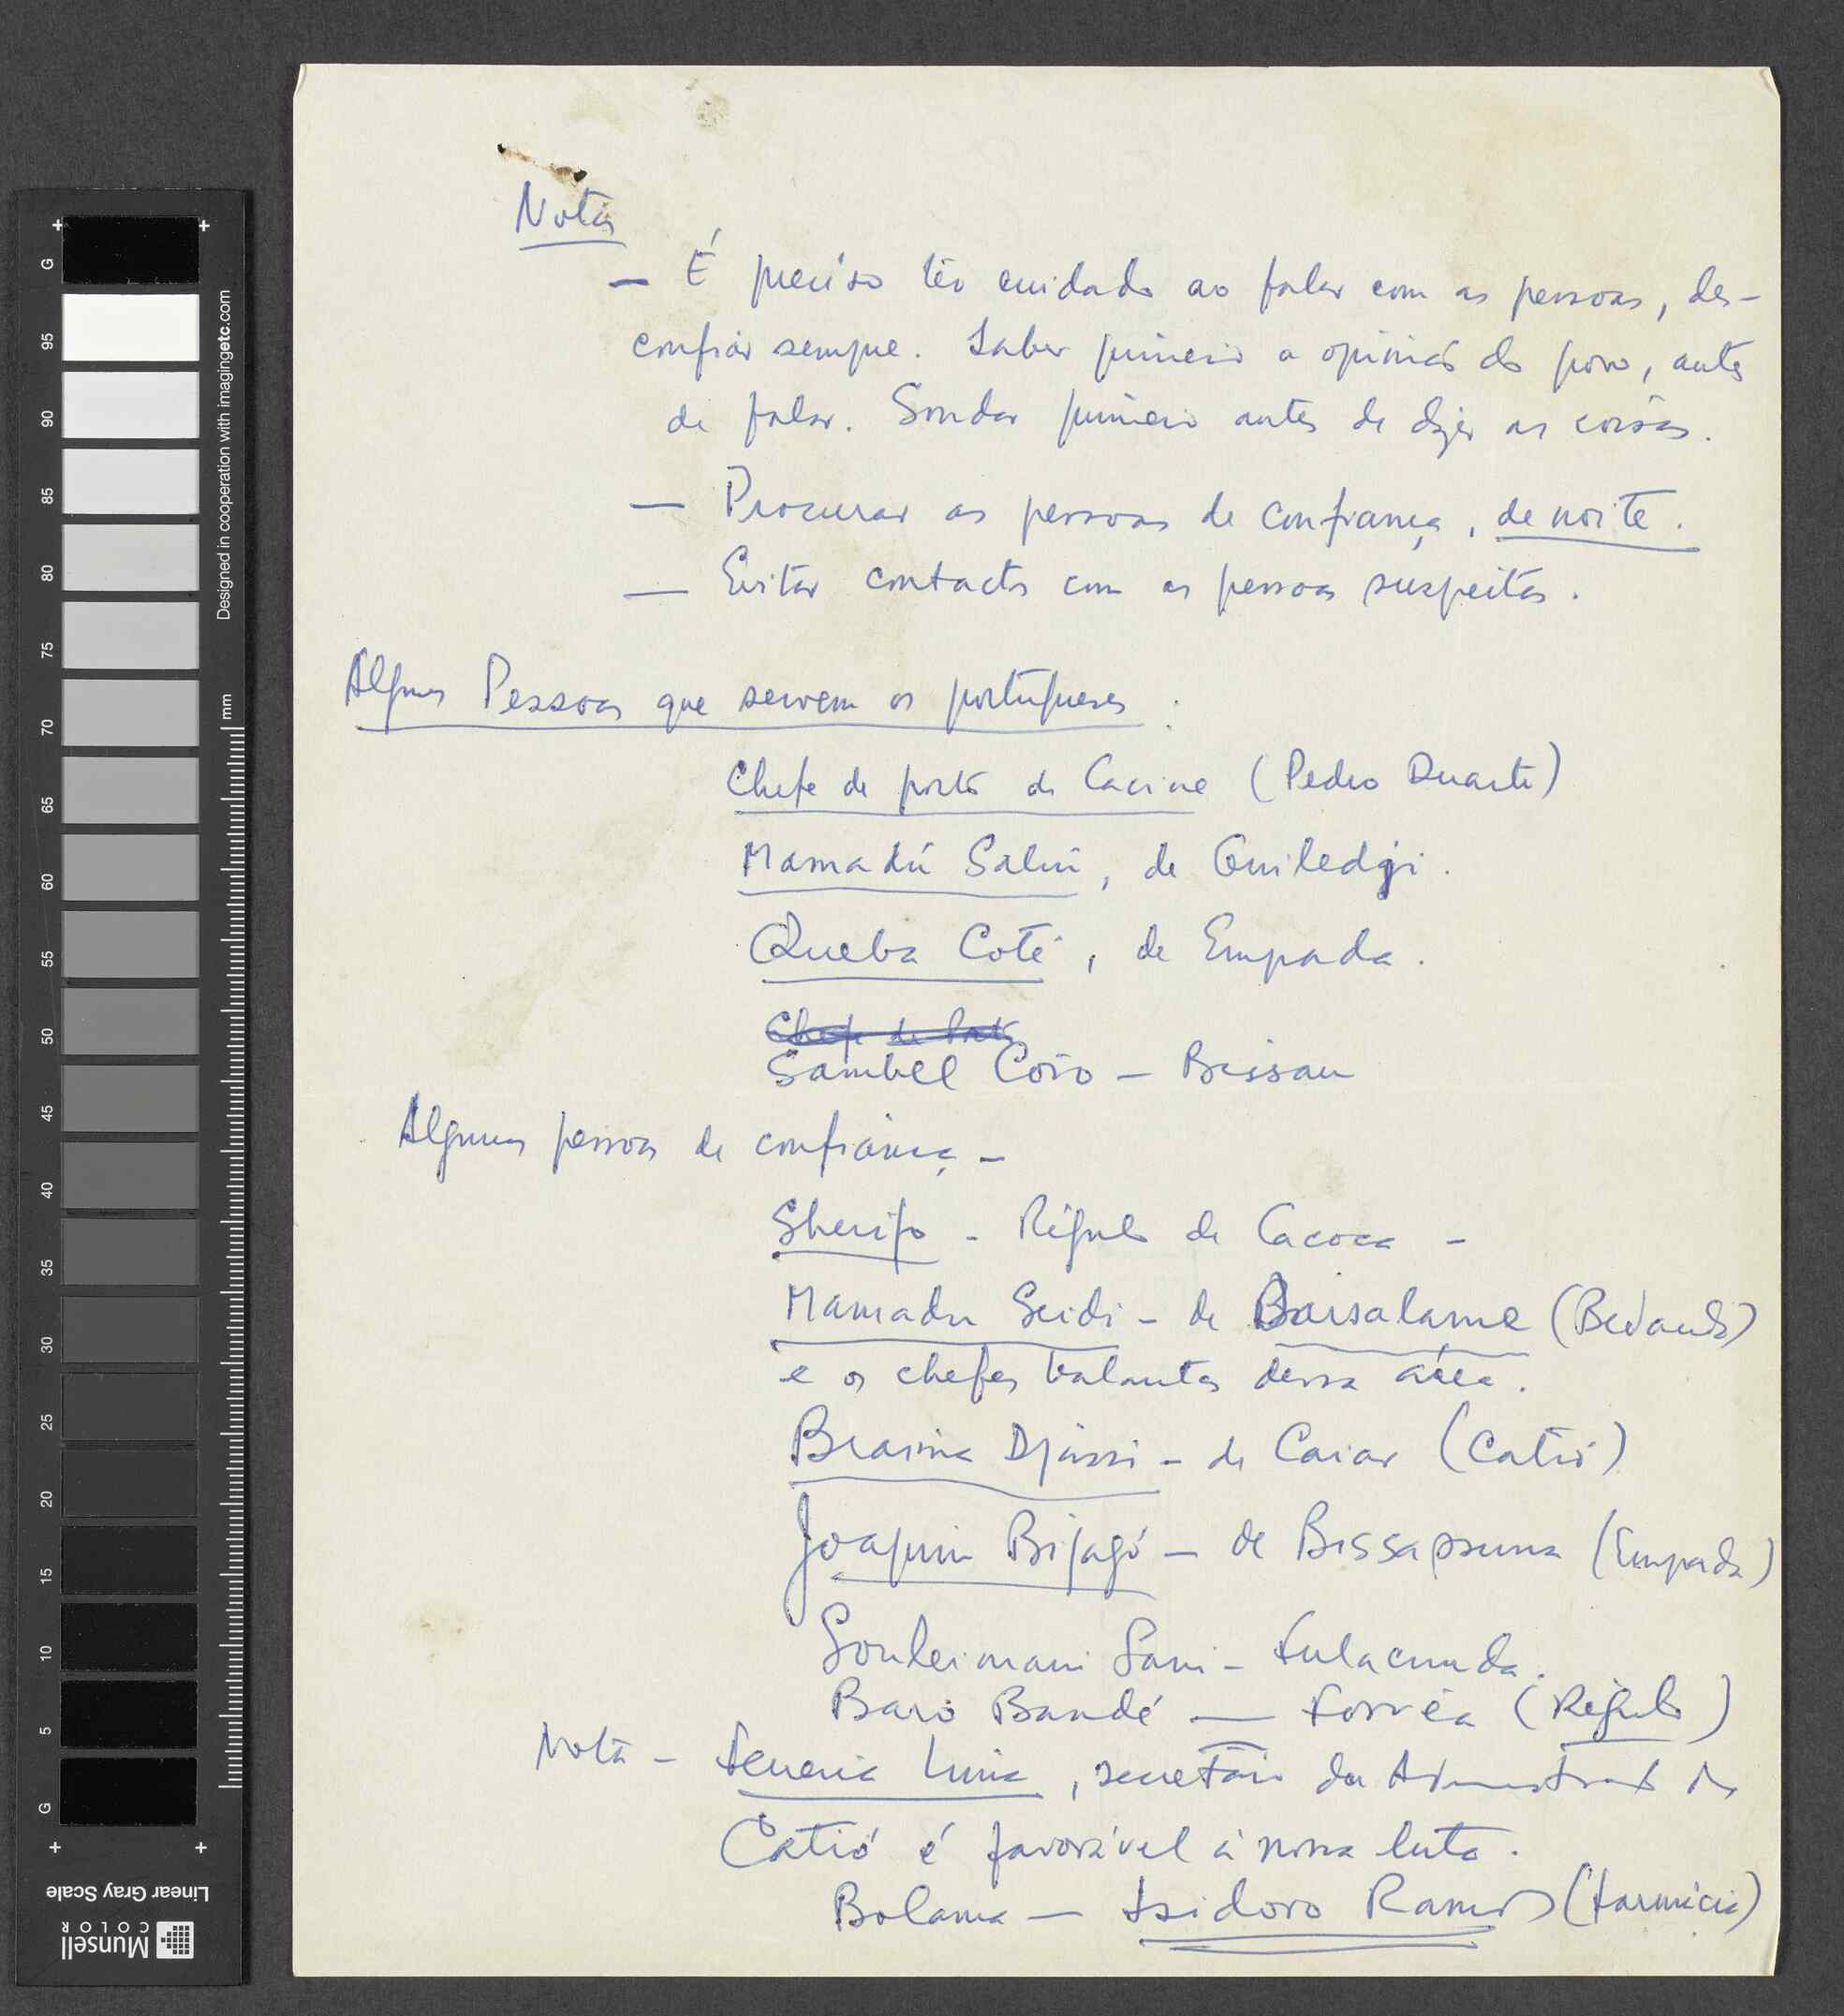 Notas
— É preciso ter cuidado ao falar com as pessoas, des-
confiar sempre. Saber primeiro a opinião do povo, antes
de falar. Sondar primeiro antes de dizer as coisas.
— Procurar as pessoas de confiança, de noite.
— Evitar contactos com as pessoas suspeitas.
Algumas Pessoas que servem os portugueses :
Chefe de posto de Cacine (Pedro Duarte)
Mamadú Saliú, de Guiledgi.
Queba Coté, de Empada.
Chefe de Posto
Sambel Coio — Bissau
Algumas pessoas de confiança —
Sherifo - Régulo de Cacoca -
Mamadu Seidi - de Darsalame (Bedanda)
e os chefes balantas dessa área.
Braima Djassi - de Caiar (Catió)
Joaquim Bijagó — de Bissassema (Empada)
Souleimani Sani - Fulacunda.
Baro Bandé — Forréa (Régulo)
Nota - Ferreira Lima, secretário da Administração de
Catió é favorável à nossa luta.
Bolama — Isidoro Ramos (Farmácia)
G 95 90 85 80 75 70 65 60 55 50 45 40 35 30 25 20 15 10 5 G
Designed in cooperation with imagingetc.com
mm
Linear Gray Scale
Munsell
COLOR